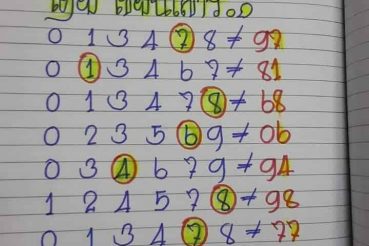 0 1 3 4 7 8 ≠ 97
0 1 3 4 6 7 ≠ 81
0 1 3 4 7 8 ≠ 68
0 2 3 5 6 9 ≠ 06
0 3 4 6 7 9 ≠ 94
1 2 4 5 7 8 ≠ 98
0 1 3 4 7 8 ≠ 77